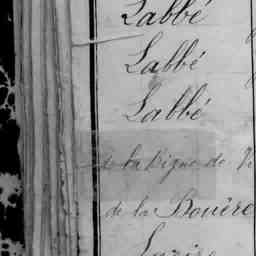 Labbé
Labbé
Labbé
de la Vigne de
de la Bouère